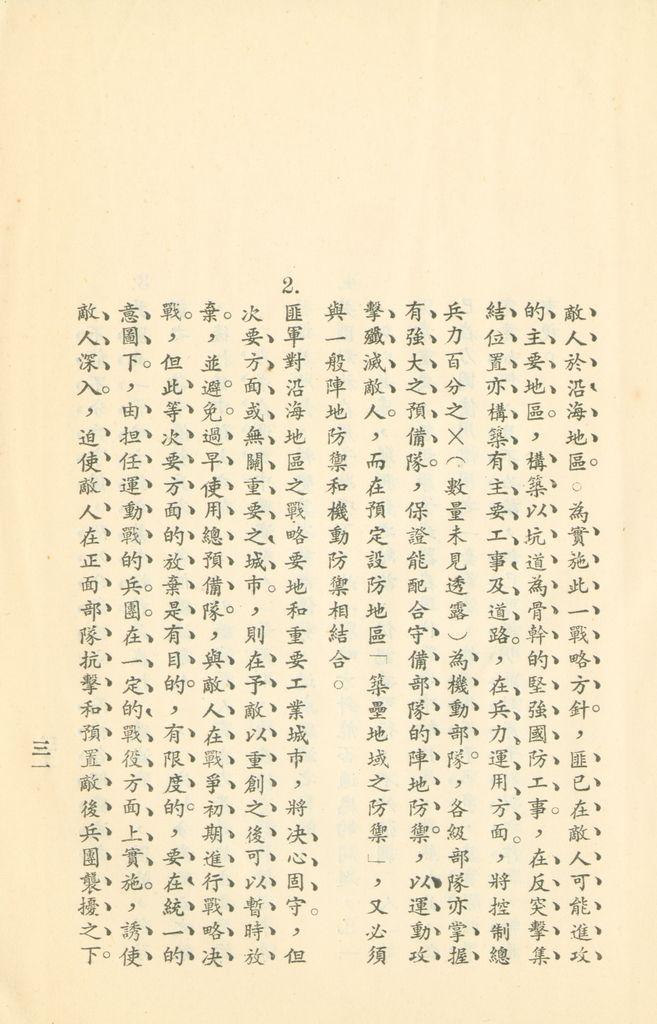 敵人於沿海地區。○為實施此一戰略方針，匪已在敵人可能進攻
的主要地區，構築以坑道為骨幹的堅強國防工事，在反突擊集
結位置亦構築有主要工事及道路，在兵力運用方面，將控制總
兵力百分之╳（數量未見透露）為機動部隊，各級部隊亦掌握
有強大之預備隊，保證能配合守備部隊的陣地防禦，以運動攻
擊殲滅敵人，而在預定設防地區「築壘地域之防禦」，又必須
與一般陣地防禦和機動防禦相結合。
2.匪軍對沿海地區之戰略要地和重要工業城市，將決心固守，但
次要方面或無關重要之城市，則在予敵以重創之後可以暫時放
棄，並避免過早使用總預備隊，與敵人在戰爭初期進行戰略决
戰，但此等次要方面的放棄是有目的，有限度的，要在統一的
意圖下，由担任運動戰的兵團在一定的戰役方面上實施，誘使
敵人深入，迫使敵人在正面部隊抗擊和預置敵後兵團襲擾之下。
三一